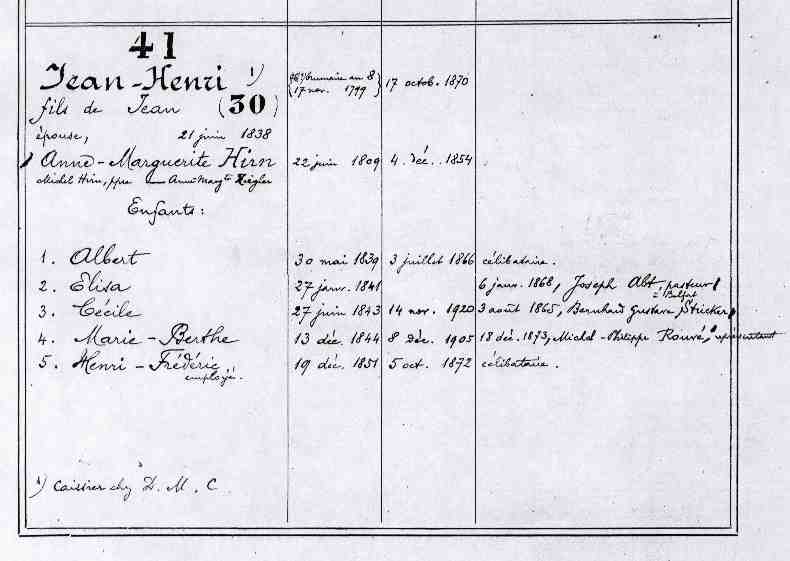 41
Jean-Henri 1) 26 brumaire an 8 17 octob. 1870
17 nov. 1799
fils de Jean (30)
épouse, 21 juin 1838
Anne-Marguerite Hirn 22 juin 1809 4. déc. 1854
Michel Hirn, ppre — Anne Margte Ziegler
Enfants:
1. Albert 30 mai 1839 3 juillet 1866 célibataire.
2. Elisa 27 janv. 1841 6 janv. 1868, Joseph Abt, pasteur
à Belfort
3. Cécile 27 juin 1843 14 nov. 1920 3 août 1865, Bernhard Gustave Stricker,
4. Marie-Berthe 13 déc. 1844 8 déc. 1905 18 déc. 1873, Michel-Philippe Rouvé, représentant
5. Henri-Frédéric 19 déc. 1851 5 oct. 1872 célibataire.
employé.
1) Caissier chez D. M. C